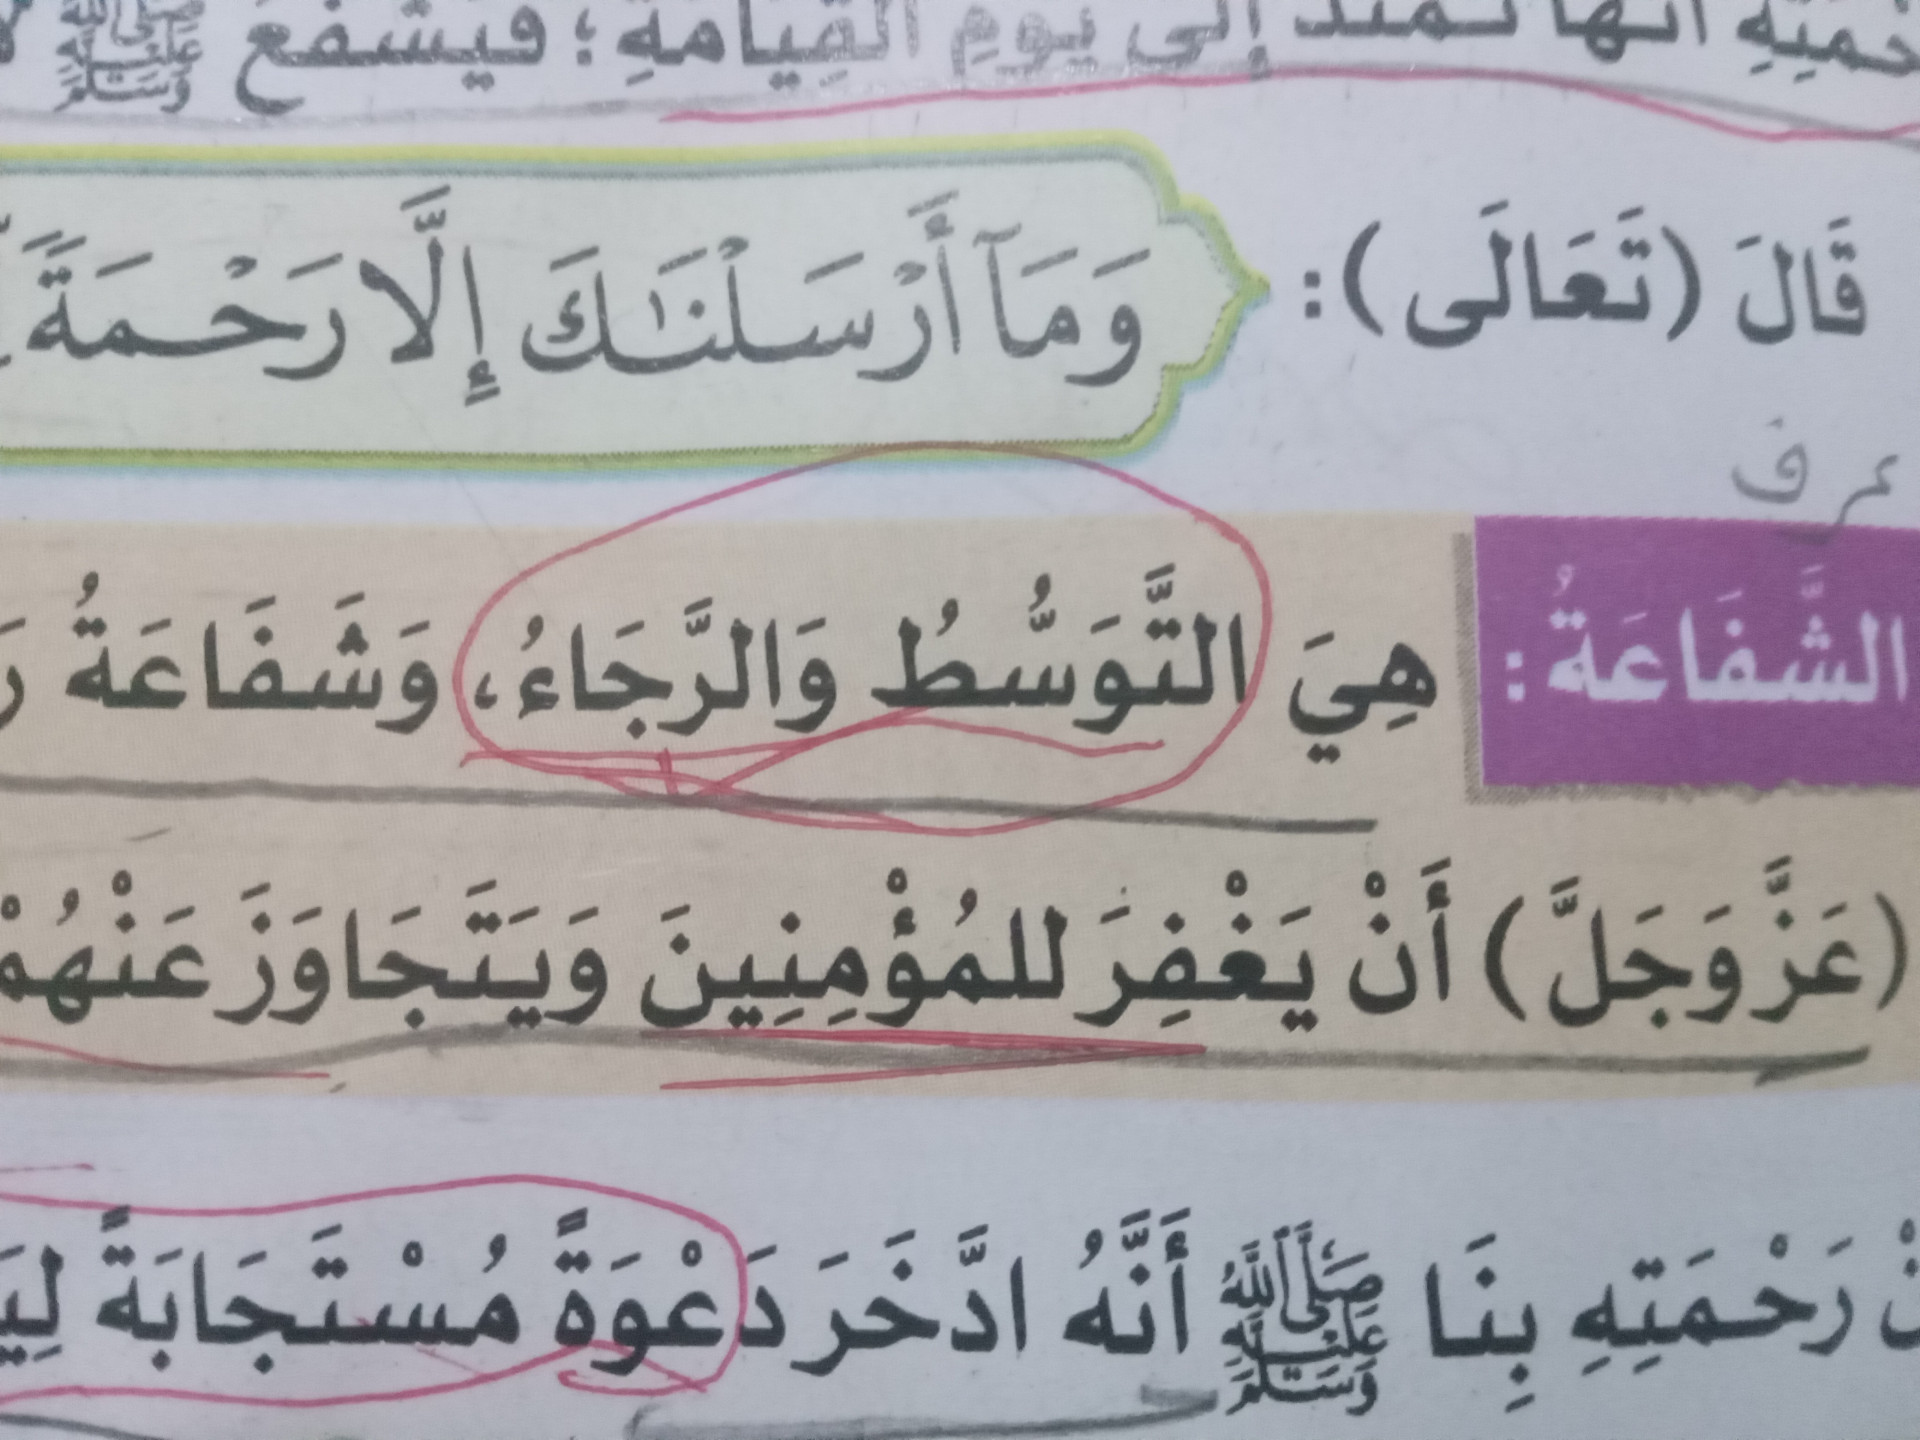 إلى يومِ القيامةِ؛ فيشفعَ ﷺ
قَالَ (تَعَالَى): وَمَآ أَرۡسَلۡنَٰكَ إِلَّا رَحۡمَةٗ
الشَّفَاعَةُ: هِيَ التَّوَسُّطُ وَالرَّجَاءُ، وَشَفَاعَةُ
(عَزَّ وَجَلَّ) أَنْ يَغْفِرَ للمُؤْمِنِينَ وَيَتَجَاوَزَ عَنْهُمْ
رَحْمَتِهِ بِنَا ﷺ أَنَّهُ ادَّخَرَ دَعْوَةً مُسْتَجَابَةً